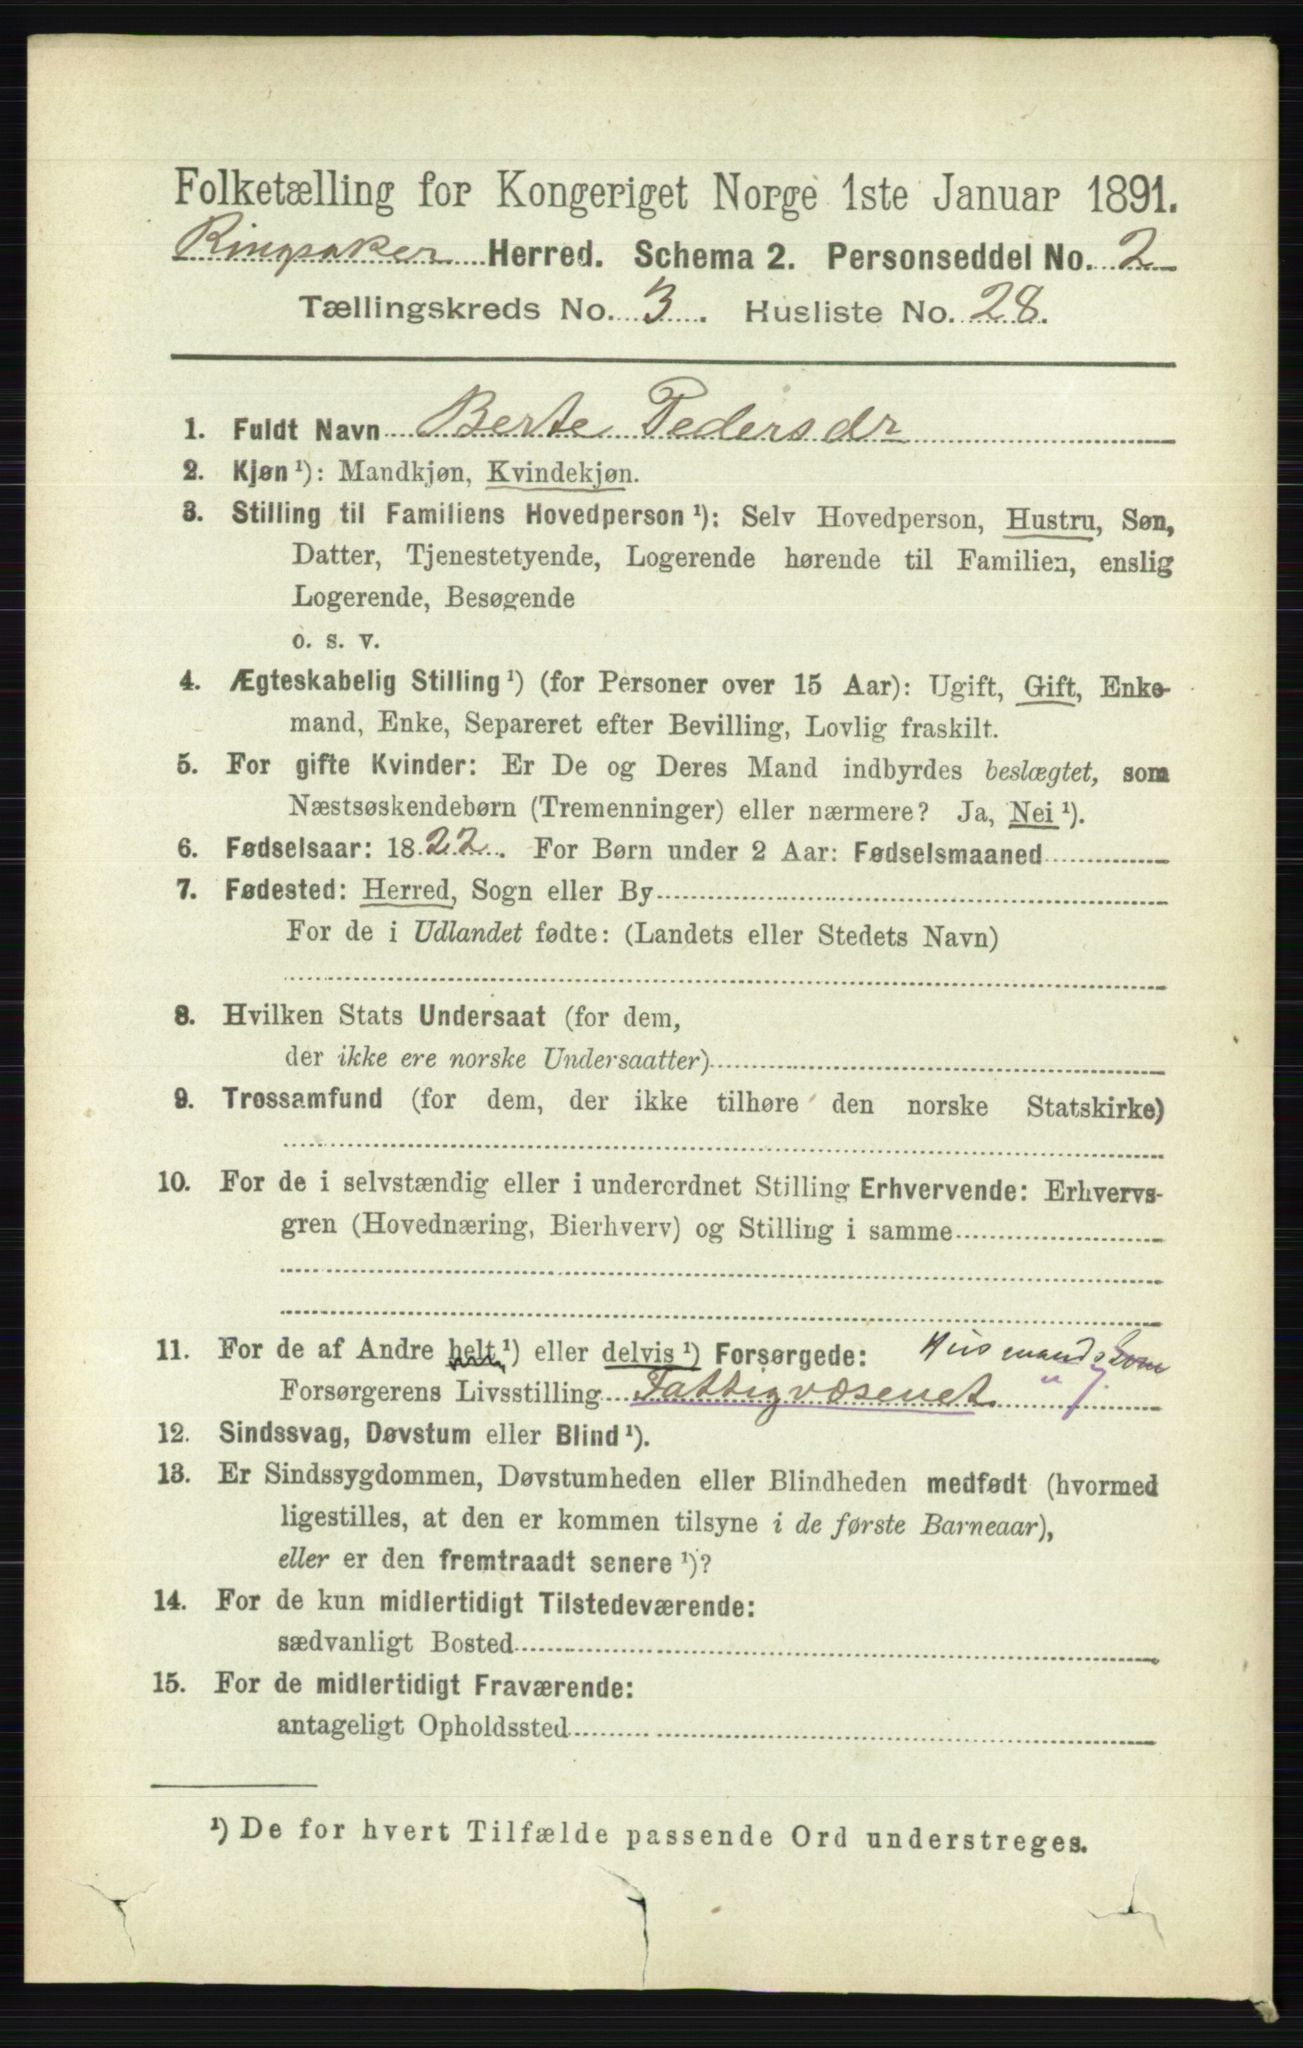 Folketælling for Kongeriget Norge 1ste Januar 1891.
Ringsaker Herred. Schema 2. Personseddel No. 2
Tællingskreds No. 3. Husliste No. 28.
1. Fuldt Navn Berte Pedersdr
2. Kjøn ¹): Mandkjøn, Kvindekjøn.
3. Stilling til Familiens Hovedperson ¹): Selv Hovedperson, Hustru, Søn,
Datter, Tjenestetyende, Logerende hørende til Familien, enslig
Logerende, Besøgende
o. s. v.
4. Ægteskabelig Stilling ¹) (for Personer over 15 Aar): Ugift, Gift, Enke-
mand, Enke, Separeret efter Bevilling, Lovlig fraskilt.
5. For gifte Kvinder: Er De og Deres Mand indbyrdes beslægtet, som
Næstsøskendebørn (Tremenninger) eller nærmere? Ja, Nei ¹).
6. Fødselsaar: 1822. For Børn under 2 Aar: Fødselsmaaned
7. Fødested: Herred, Sogn eller By
For de i Udlandet fødte: (Landets eller Stedets Navn)
8. Hvilken Stats Undersaat (for dem,
der ikke ere norske Undersaatter)
9. Trossamfund (for dem, der ikke tilhøre den norske Statskirke)
10. For de i selvstændig eller i underordnet Stilling Erhvervende: Erhvervs-
gren (Hovednæring, Bierhverv) og Stilling i samme
11. For de af Andre helt ¹) eller delvis ¹) Forsørgede: Husmand
Forsørgerens Livsstilling Fattigvæsenet
12. Sindssvag, Døvstum eller Blind ¹).
13. Er Sindssygdommen, Døvstumheden eller Blindheden medfødt (hvormed
ligestilles, at den er kommen tilsyne i de første Barneaar),
eller er den fremtraadt senere ¹)?
14. For de kun midlertidigt Tilstedeværende:
sædvanligt Bosted
15. For de midlertidigt Fraværende:
antageligt Opholdssted
¹) De for hvert Tilfælde passende Ord understreges.